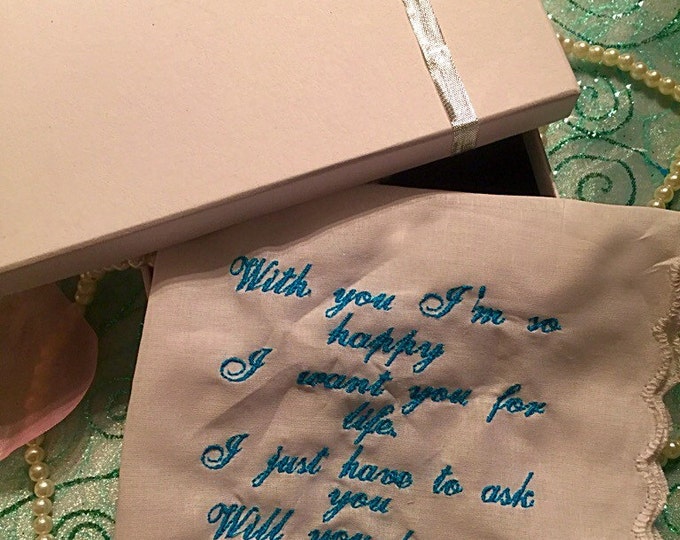 With you I'm so
happy
I want you for
life.
I just have to ask
you
Will you